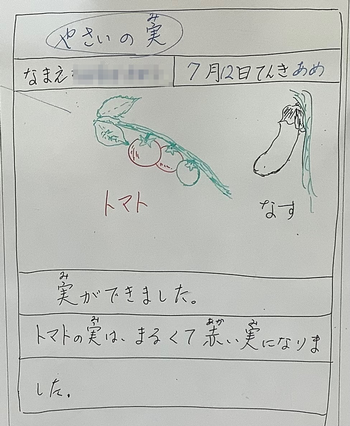 やさいの実
み
なまえ
7月12日てんきあめ
トマト
なす
み
実ができました。
み
あか
み
トマトの実は、まるくて赤い実になりま
した。